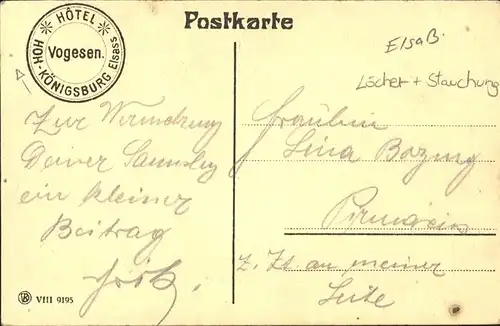 Postkarte
HÔTEL
HOH-KÖNIGSBURG Elsass
Vogesen.
Elsaß.
Löcher + Stauchung
Zur Vermehrung
Deiner Sammlung
ein kleiner
Beitrag
Fräulein
Lina Bozung
Pirmasens
z. Zt. an meiner
Seite
VIII 9195